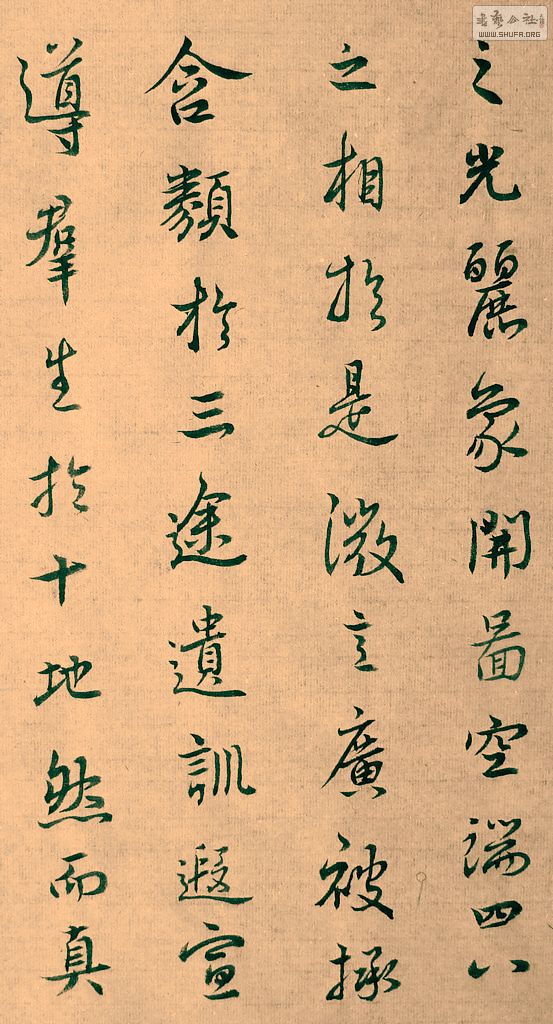 之光麗象開啚空端四八
之相於是微言廣被拯
含類於三途遺訓遐宣
導羣生於十地然而真
书艺公社
WWW.SHUFA.ORG